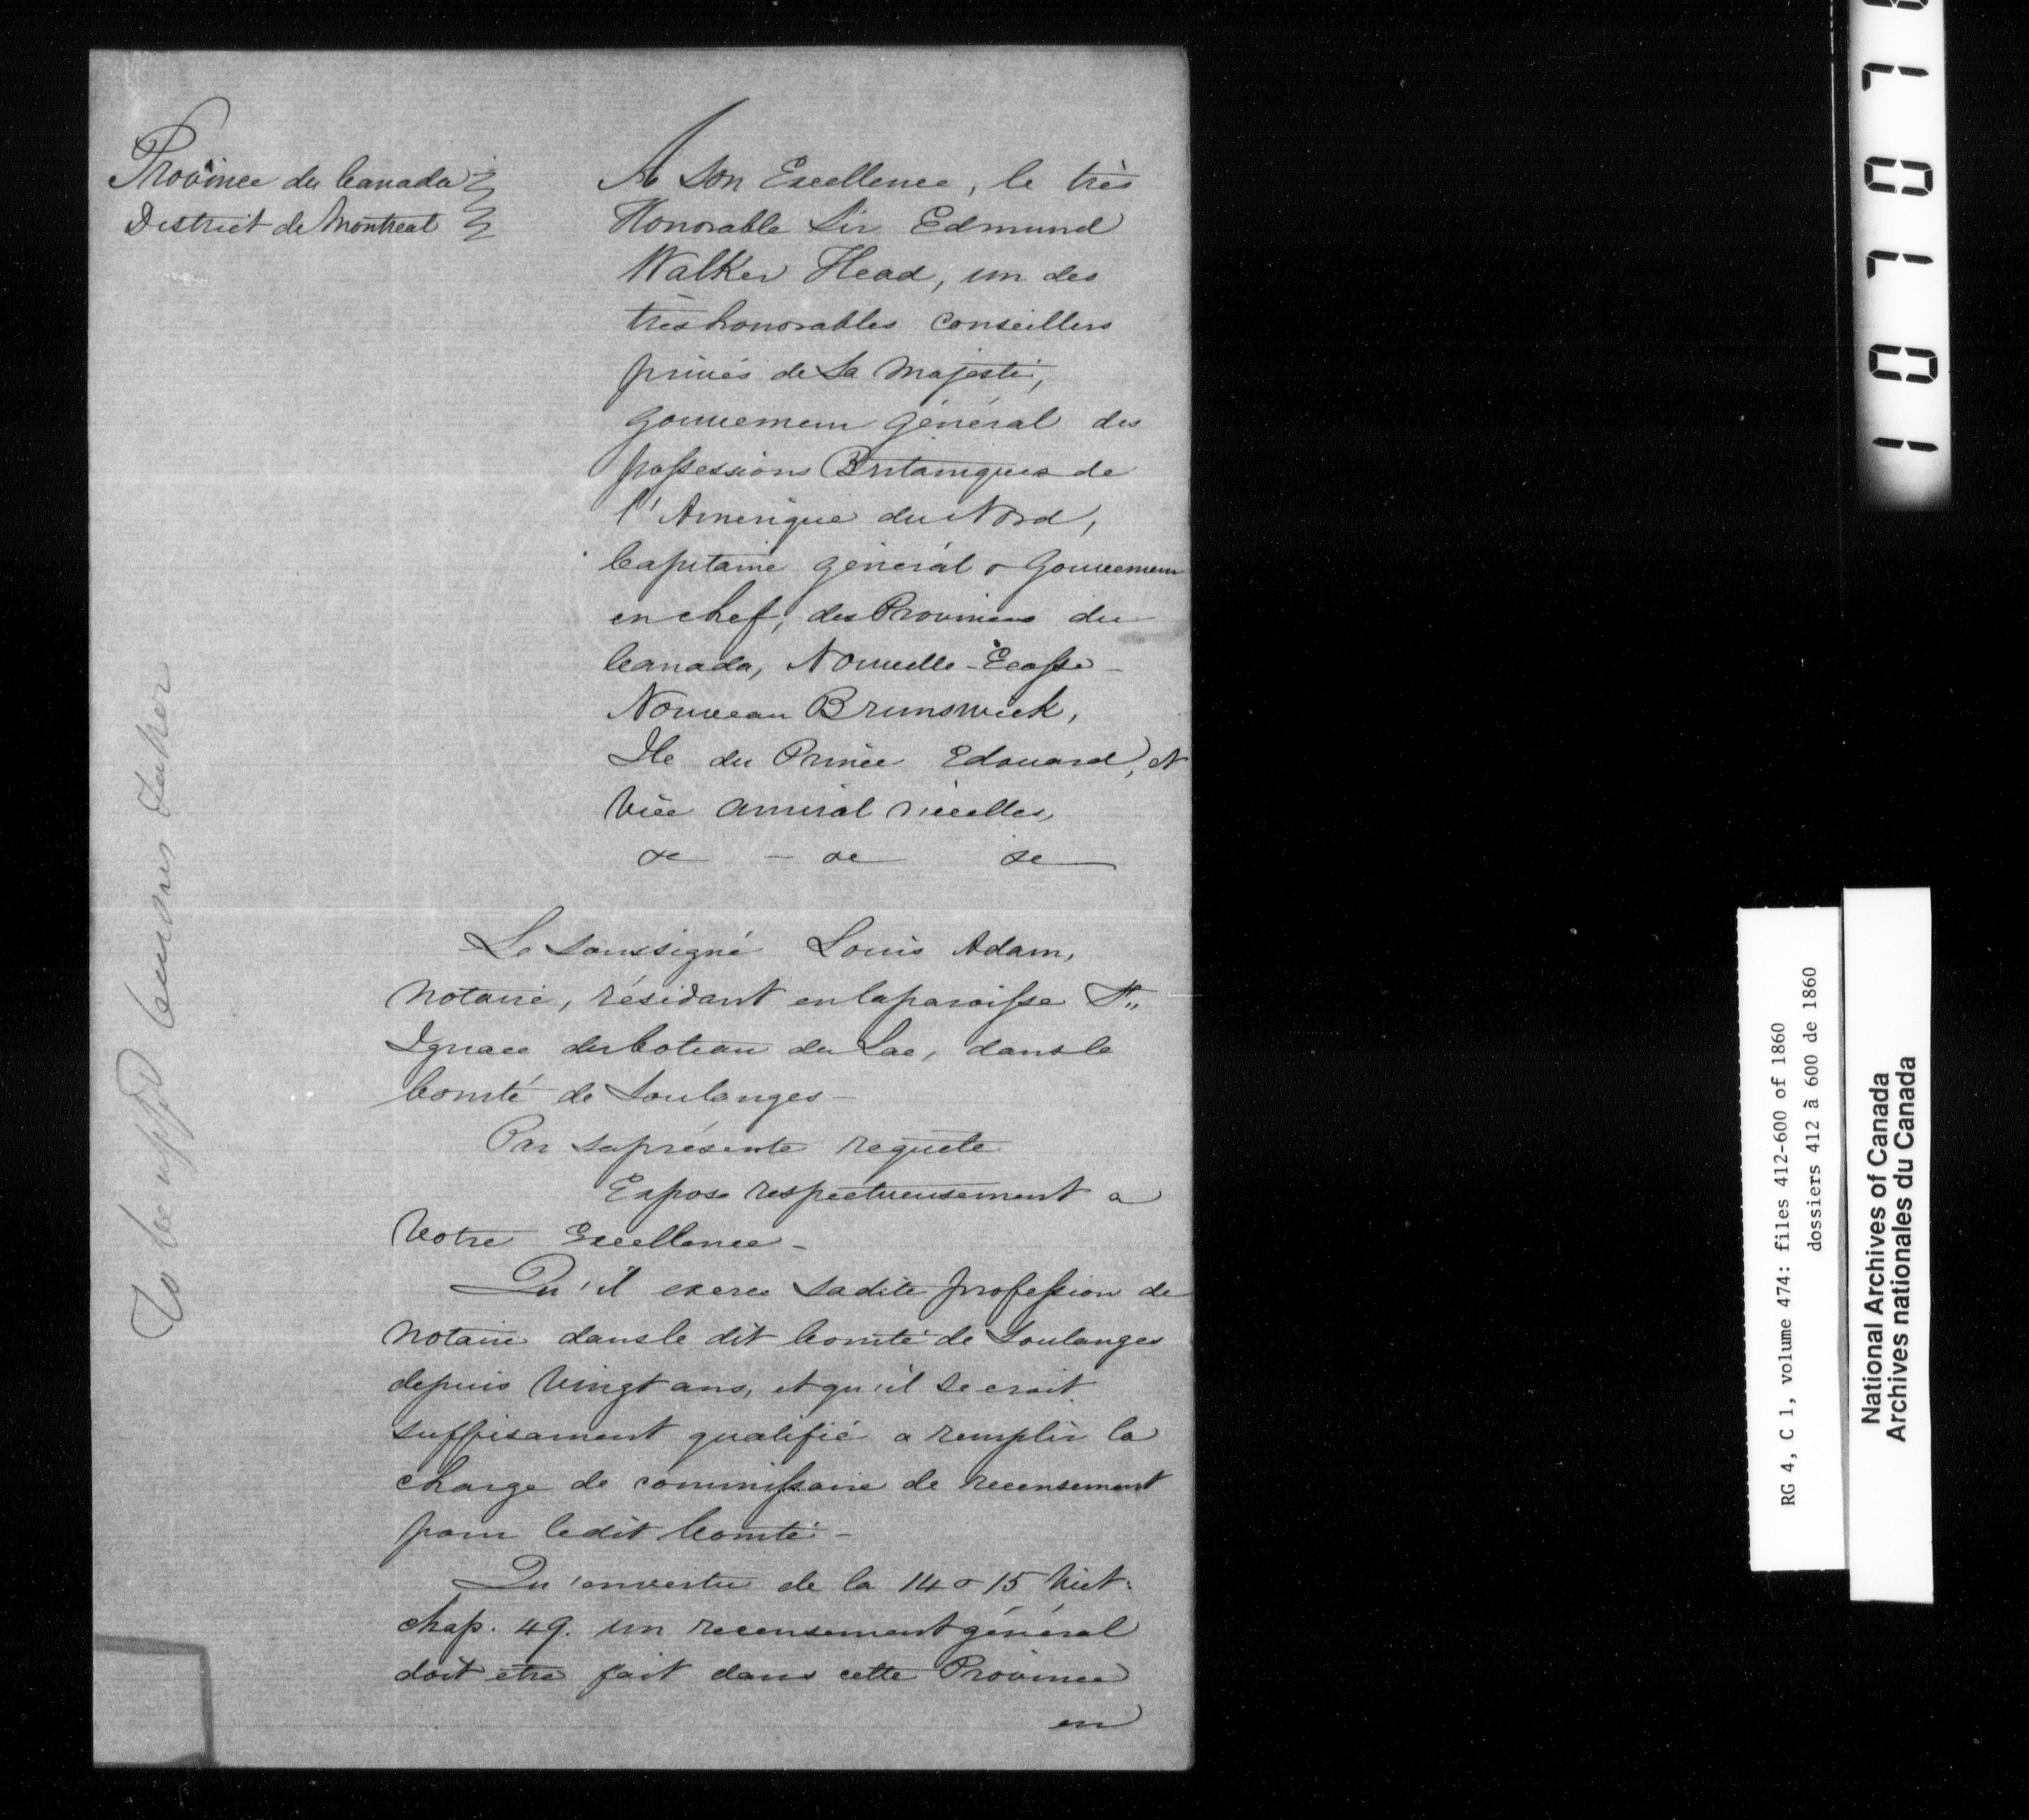 Province du Canada
District de Montreal
A Son Excellence, le très
Honorable Sir Edmund
Walker Head, un des
très honorables conseillers
privés de Sa Majesté,
Gouverneur général des
possessions Britaniques de
l'Amerique du Nord,
Capitaine général & Gouverneur
en chef, des Provinces du
Canada, Nouvelle-Ecosse-
Nouveau Brunswick,
Ile du Prince Edouard, et
Vice amiral d'icelles,
&c - &c &c
Le Soussigné Louis Adam,
Notaire, résidant en la paroisse St.,
Ignace du Coteau du Lac, dans le
Comté de Soulanges -
Par sa présente requete
Expose respectueusement a
Votre Excellence -
Qu'il exerce sa dite profession de
Notaire dans le dit Comté de Soulanges
depuis vingt ans, et qu'il se croit
suffisament qualifié a remplir la
charge de commissaire de recensement
pour le dit Comté -
Qu'en vertu de la 14 & 15 Vict.
chap. 49. un recensement général
doit etre fait dans cette Province
en
To be appd
RG 4, C 1, volume 474: files 412-600 of 1860
dossiers 412 à 600 de 1860
National Archives of Canada
Archives nationales du Canada